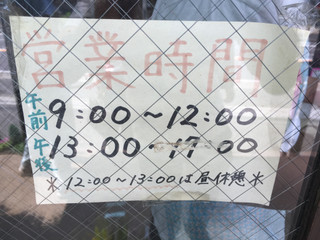 営業時間
午前 9:00～12:00
午後 13:00-17:00
※12:00～13:00は昼休憩※